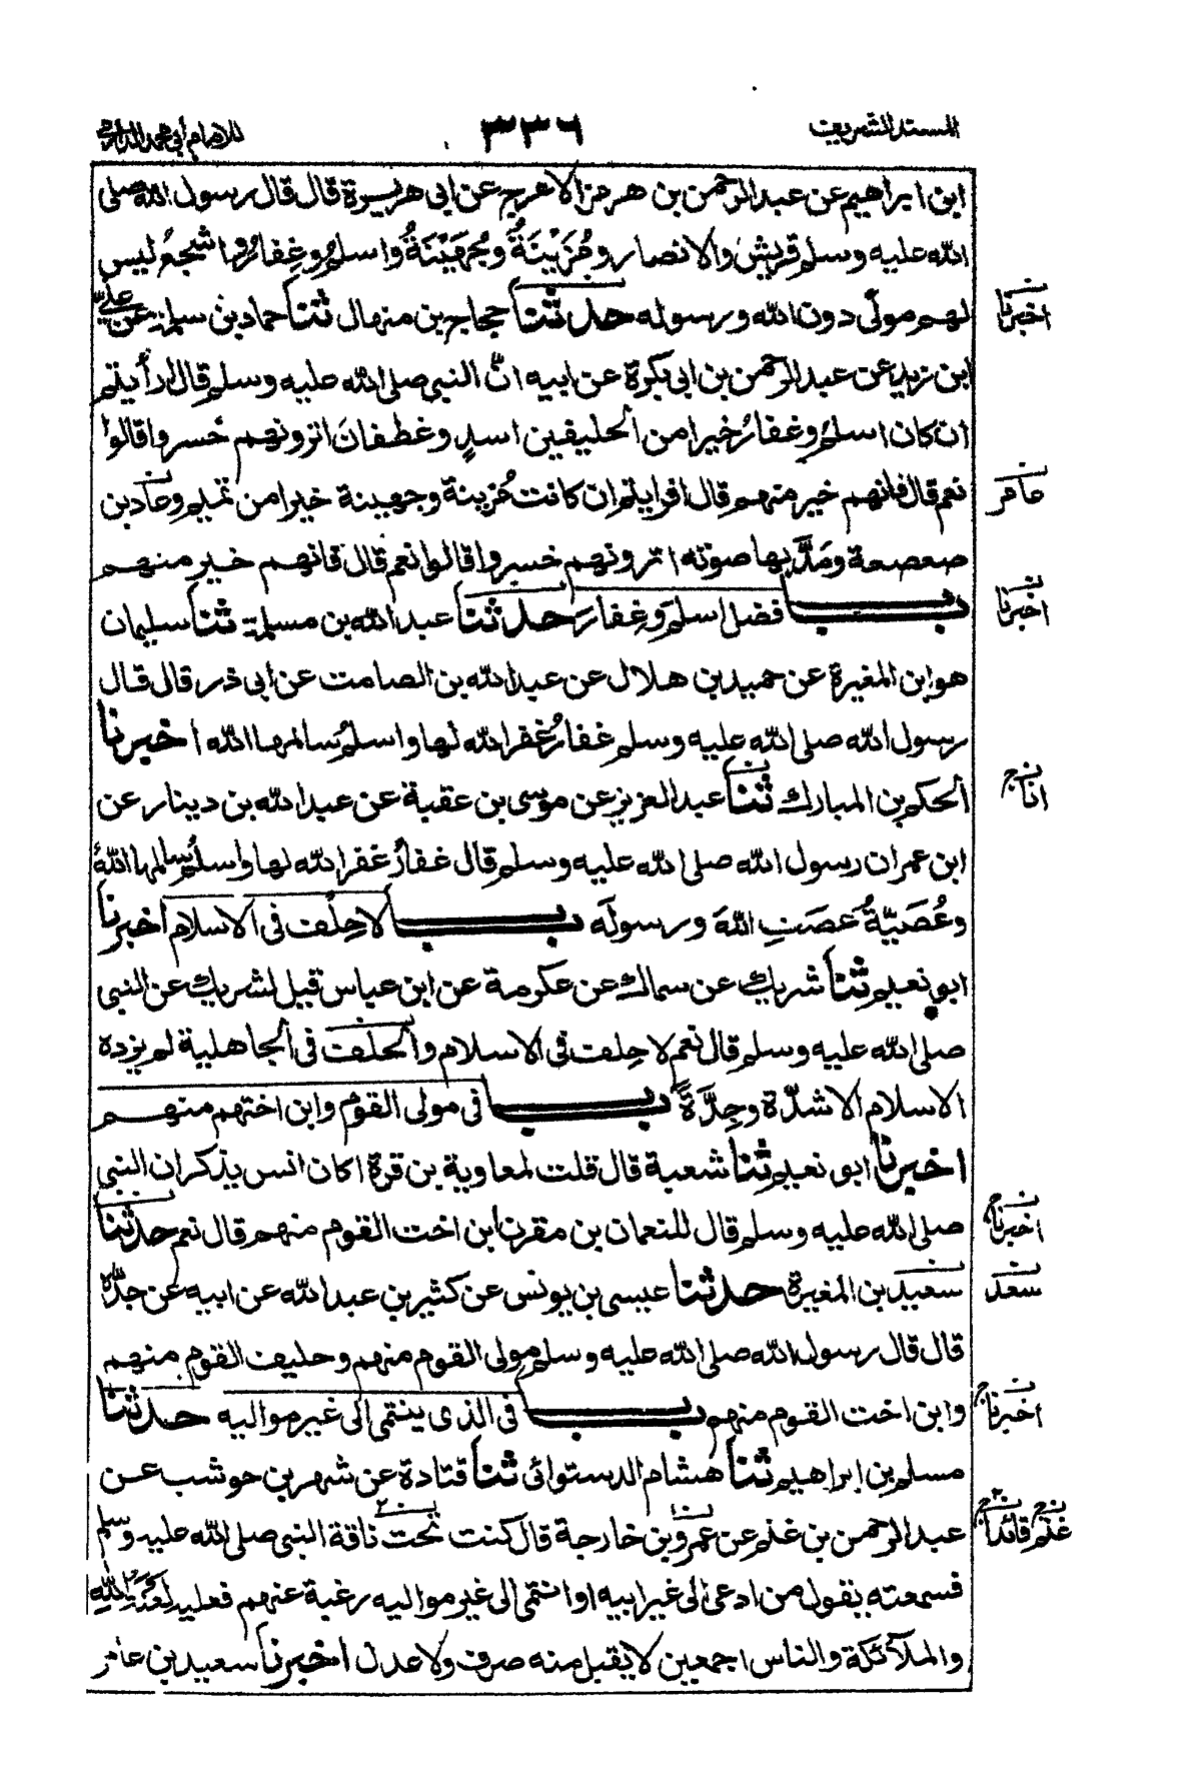 المسند الشريف ٣٣٦ للامام أبي محمد الدارمي
ابن ابراهيم عن عبد الرحمن بن هرمز الاعرج عن ابى هريرة قال قال رسول الله صلى
الله عليه وسلم قريش والانصار ومُزَيْنَةُ وجُهَيْنَةُ واسلمُ وغِفارُ واشجعُ ليس
لهم مولًى دون الله ورسوله حدثنا حجاج بن منهال ثنا حماد بن سلمة عن عليّ
اخبرنا
ابن زيد عن عبد الرحمن بن ابى بكرة عن ابيه انّ النبي صلى الله عليه وسلم قال ارأيتم
ان كان اسلمُ وغفارُ خيرا من الحليفين اسدٍ وغطفانَ اترونهم خسروا قالوا
نعم قال فانهم خير منهم قال افرايتم ان كانت مُزينة وجهينة خيرا من تميم وعاد بن
عامر
صعصعة ومَدَّ بها صوته اترونهم خسروا قالوا نعم قال فانهم خير منهم
بــب فضل اسلم وغِفارَ حدثنا عبد الله بن مسلمة ثنا سليمان
اخبرنا
هو ابن المغيرة عن حميد بن هلال عن عبد الله بن الصامت عن ابى ذر قال قال
رسول الله صلى الله عليه وسلم غفارُ غفر الله لها واسلمُ سالمها الله اخبرنا
ألحكم بن المبارك ثنا عبد العزيز عن موسى بن عقبة عن عبد الله بن دينار عن
انا
ابن عمر ان رسول الله صلى الله عليه وسلم قال غفارُ غفر الله لها واسلمُ سالمها اللهُ
وعُصَيّةُ عَصَتِ اللهَ ورسولَه بــب لا حِلْف فى الاسلام اخبرنا
ابو نعيم ثنا شريك عن سماك عن عكرمة عن ابن عباس قيل لشريك عن النبي
صلى الله عليه وسلم قال نعم لا حِلف فى الاسلام والحلف فى ألجاهلية لم يزده
الاسلام الا شدّة وجِدَّةً بــب فى مولى القوم وابن اختهم منهم
اخبرنا ابو نعيم ثنا شعبة قال قلت لمعاوية بن قرة اكان انس يذكر ان النبي
صلى الله عليه وسلم قال للنعمان بن مقرن ابن اخت القوم منهم قال نعم حدثنا
اخبرنا
سعيد بن المغيرة حدثنا عيسى بن يونس عن كثير بن عبد الله عن ابيه عن جدّه
سعد
قال قال رسول الله صلى الله عليه وسلم مولى القوم منهم وحليف القوم منهم
وابن اخت القوم منهم بــب فى الذى ينتمى الى غير مواليه حدثنا
اخبرنا
مسلم بن ابراهيم ثنا هشام الدستوائى ثنا قتادة عن شهر بن حوشب عن
عبد الرحمن بن غنم عن عمرو بن خارجة قال كنت تحت ناقة النبي صلى الله عليه وسلم
غنم قائدا
فسمعته يقول من ادعى الى غير ابيه او انتمى الى غير مواليه رغبة عنهم فعليه لَعْنَةُ اللهِ
والملآئكة والناس اجمعين لا يقبل منه صرف ولا عدل اخبرنا سعيد بن عامر